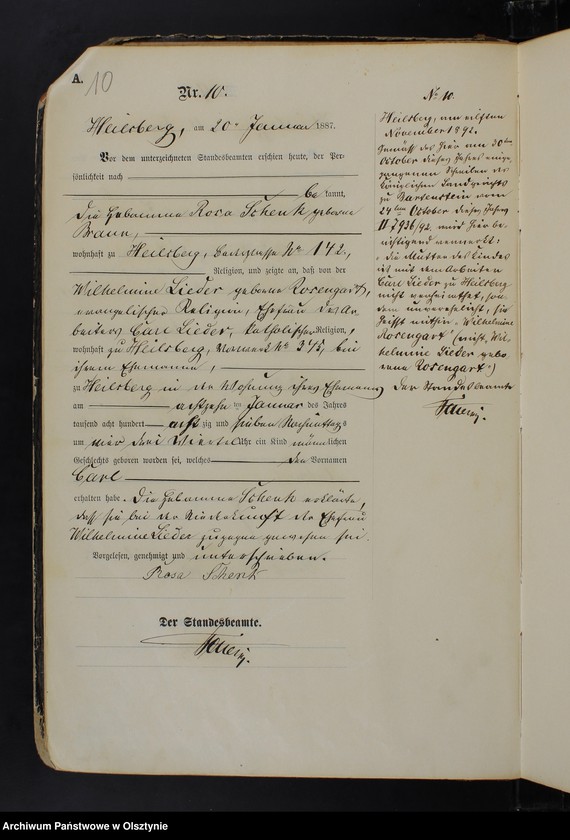 A.
10
Nr. 10.
Heilsberg, am 20. Januar 1887.
Vor dem unterzeichneten Standesbeamten erschien heute, der Per-
sönlichkeit nach
be kannt,
die Hebamme Rosa Schenk geborene
Braun,
wohnhaft zu Heilsberg, No 142,
Religion, und zeigte an, daß von der
Wilhelmine Lieder geborene Rosengart,
evangelischer Religion, Ehefrau des Ar-
beiters Carl Lieder, katholischer Religion,
wohnhaft zu Heilsberg, No 345, bei
ihrem Ehemanne,
zu Heilsberg in der Wohnung ihres Ehemannes
am achtzehn ten Januar des Jahres
tausend acht hundert acht zig und sieben Nachmittags
um drei Viertel Uhr ein Kind männlichen
Geschlechts geboren worden sei, welches den Vornamen
Carl
erhalten habe. Die Hebamme Schenk erklärte,
daß sie bei der Niederkunft der Ehefrau
Wilhelmine Lieder zugegen gewesen sei.
Vorgelesen, genehmigt und unterschrieben.
Rosa Schenk
Der Standesbeamte.
No 10.
Heilsberg, am elften
November 1892.
Gemäß des hier am 30ten
October dieses Jahres einge-
gangenen Schreibens des
Königlichen Landgerichts
zu Bartenstein vom
24ten October dieses Jahres
II 7936/92 wird hier be-
richtigend vermerkt:
"die Mutter des Kindes
ist mit dem Arbeiter
Carl Lieder zu Heilsberg
nicht verheirathet, son-
dern unverehelicht, sie
heißt mithin "Wilhelmine
Rosengart" (nicht "Wil-
helmine Lieder gebo-
rene Rosengart")
Der Standesbeamte
Archiwum Państwowe w Olsztynie